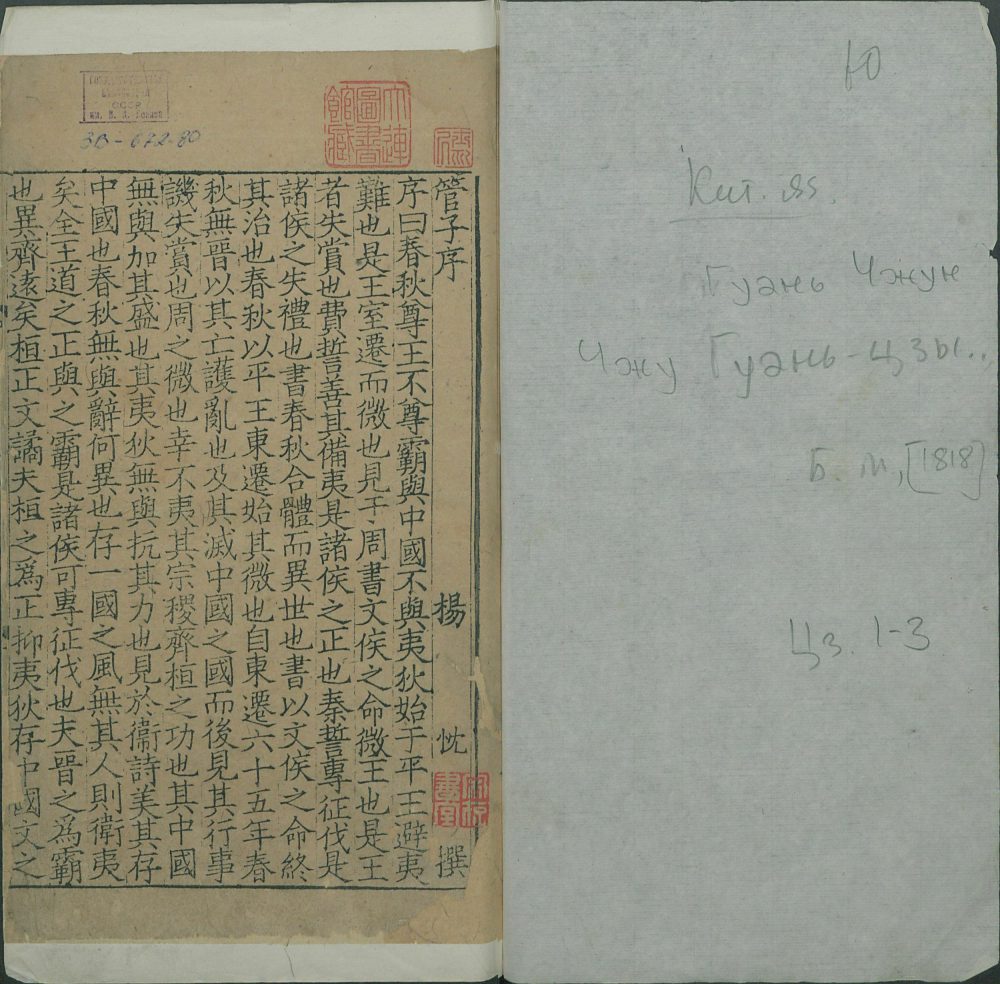 Ю
Кит. яз.
Гуань Чжун
Чжу Гуань-цзы..
Б. м., [1818]
Цз. 1-3
СССР
им. В. И. Ленина
3В-
大連
圖書
館藏
管子序 楊 忱 撰
宋存
書室
序曰春秋尊王不尊霸與中國不與夷狄始于平王避夷
難也是王室遷而微也見于周書文侯之命微王也是王
者失賞也費誓善其備夷是諸侯之正也秦誓專征伐是
諸侯之失禮也書春秋合體而異世也書以文侯之命終
其治也春秋以平王東遷始其微也自東遷六十五年春
秋無晉以其亡護亂也及其滅中國之國而後見其行事
譏失賞也周之微也幸不夷其宗稷齊桓之功也其中國
無與加其盛也其夷狄無與抗其力也見於衞詩美其存
中國也春秋無與辭何異也存一國之風無其人則衞夷
矣全王道之正與之霸是諸侯可專征伐也夫晉之爲霸
也異齊遠矣桓正文譎夫桓之爲正抑夷狄存中國文之